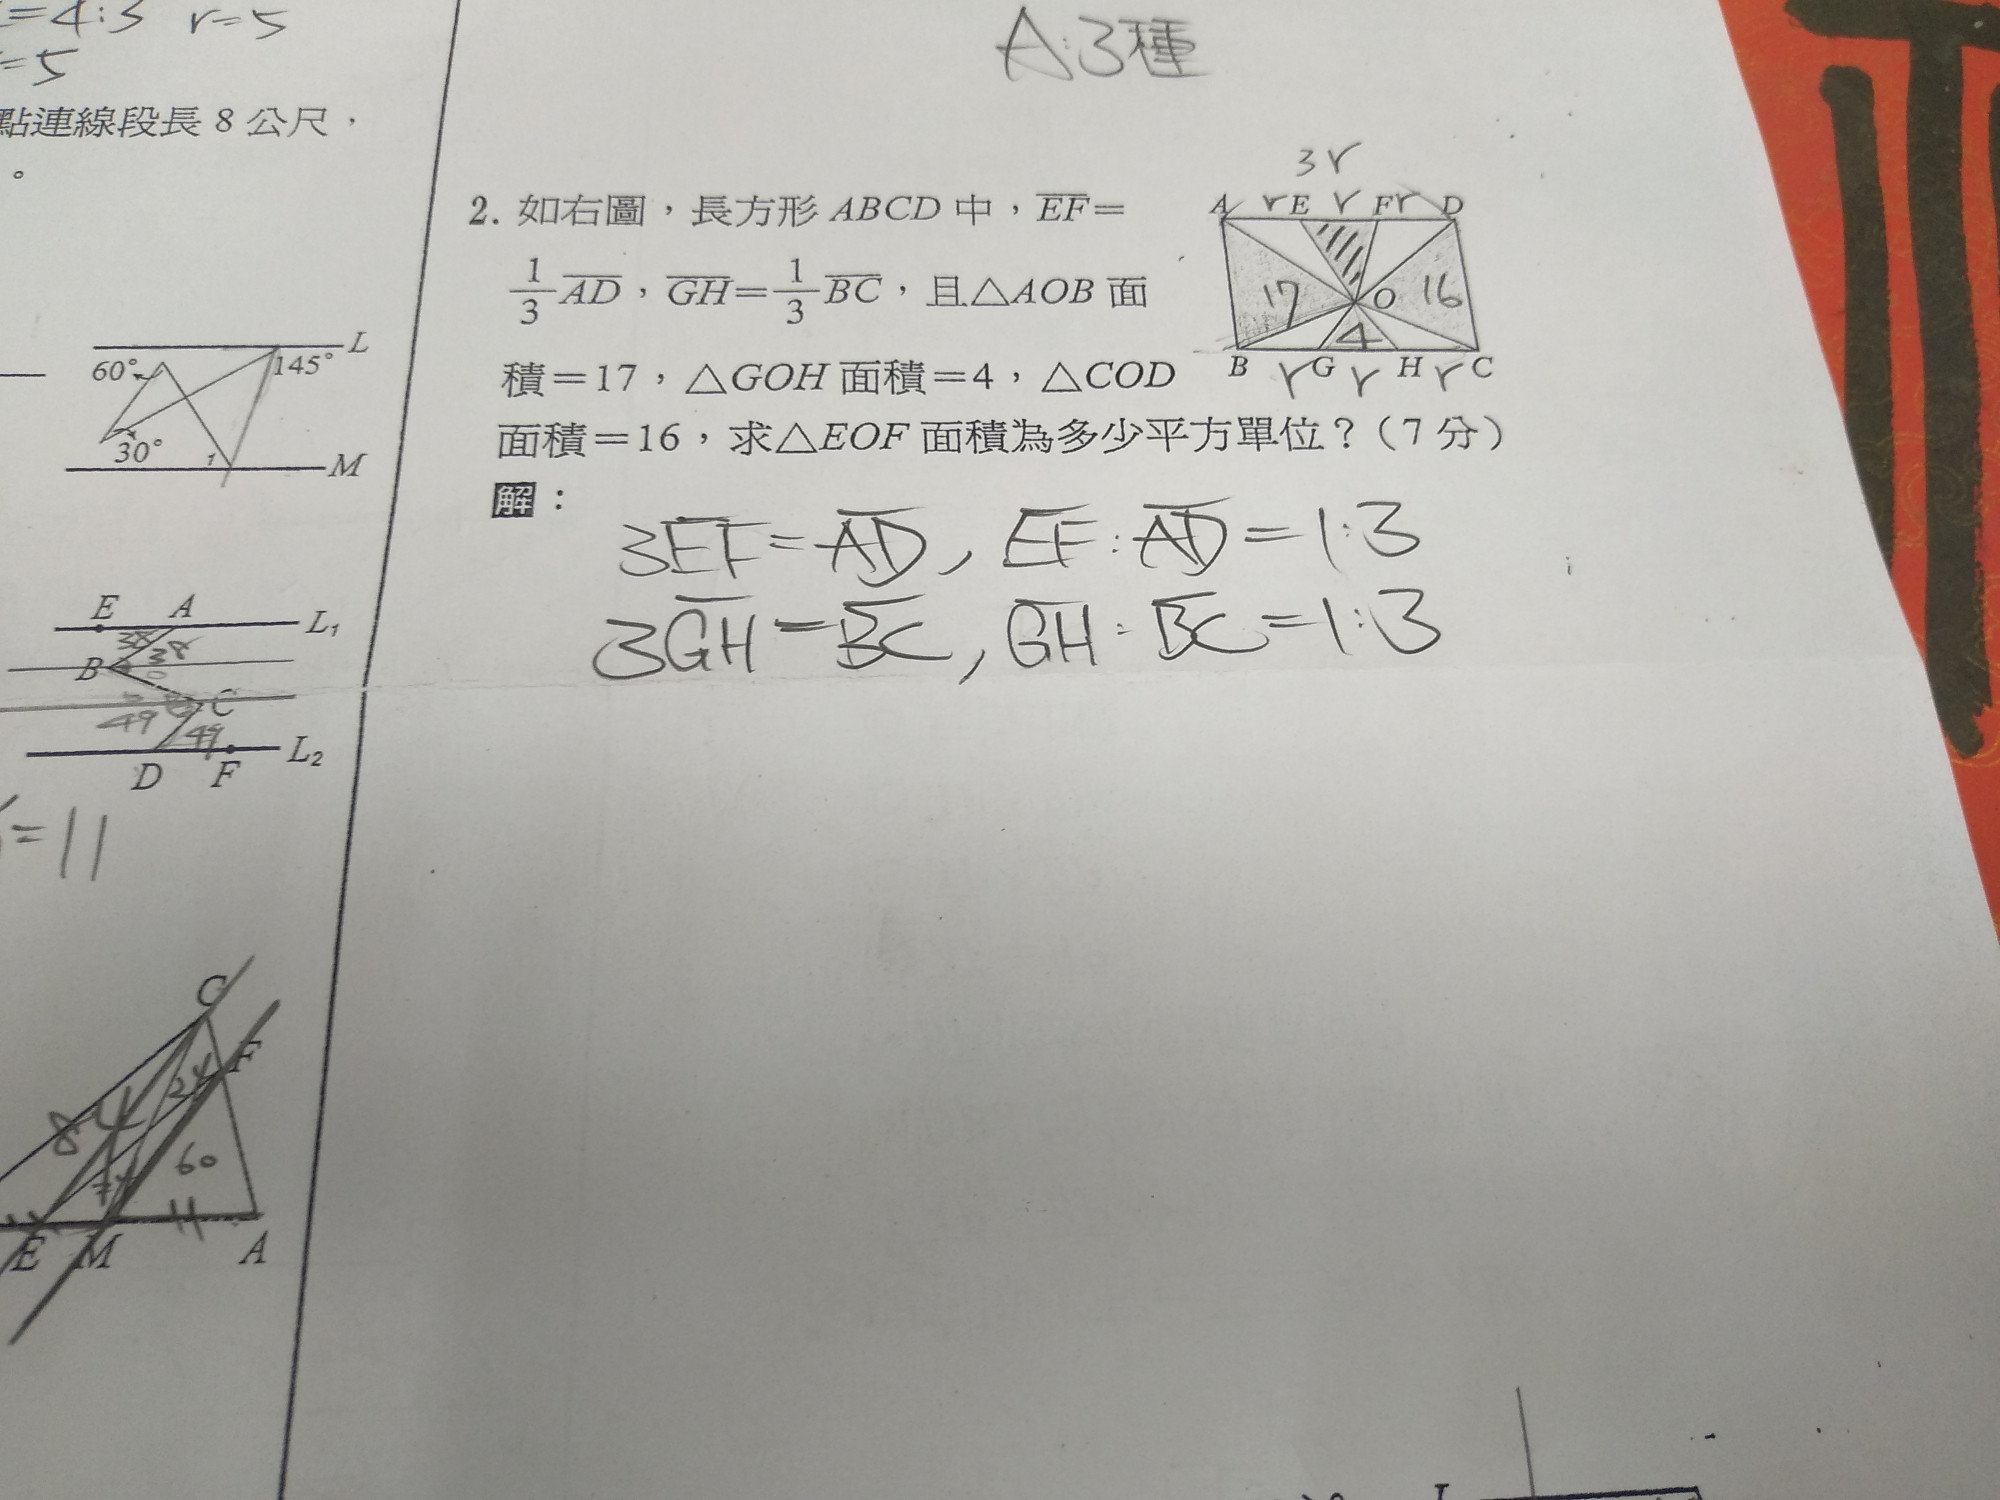 =4:3 r=5
=5
點連線段長 8 公尺，
。
60° 145° L
30° 1 M
E A L₁
38 38
B
49 C
49
D F L₂
=11
C
F
84 24
60
11
E M A
A:3種
2. 如右圖，長方形 ABCD 中，EF=
1/3 AD，GH=1/3 BC，且△AOB 面
積=17，△GOH 面積=4，△COD
面積=16，求△EOF 面積為多少平方單位？(7 分)
3r
A r E r F r D
17 O 16
4
B r G r H r C
解：
3EF=AD, EF:AD=1:3
3GH=BC, GH:BC=1:3